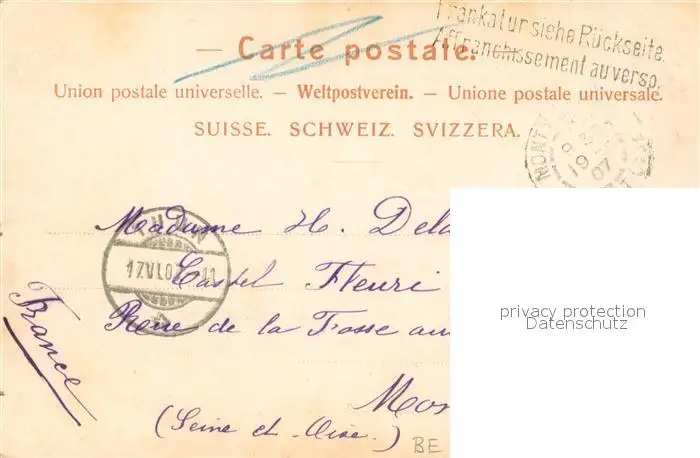 Frankatur siehe Rückseite.
Affranchissement au verso.
— Carte postale.
Union postale universelle. — Weltpostverein. — Unione postale universale.
SUISSE. SCHWEIZ. SVIZZERA.
MONT
19
07
THUN
17.VI.07. 11
Madame H. Dela
Castel Fleuri
Rue de la Fosse aux
Mon
(Seine et Oise.)
France
BE
privacy protection
Datenschutz